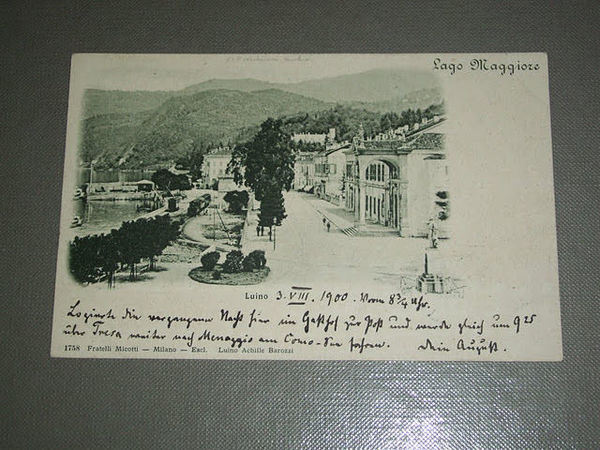 Lago Maggiore
Luino 3. VIII. 1900. Vorm 8¾ Uhr.
Logierte die vergangene Nacht hier im Gasthof zur Post und werde gleich um 9 25
über Tresa weiter nach Menaggio am Como-See fahren. Dein August.
1758 Fratelli Micotti — Milano — Escl. Luino Achille Barozzi